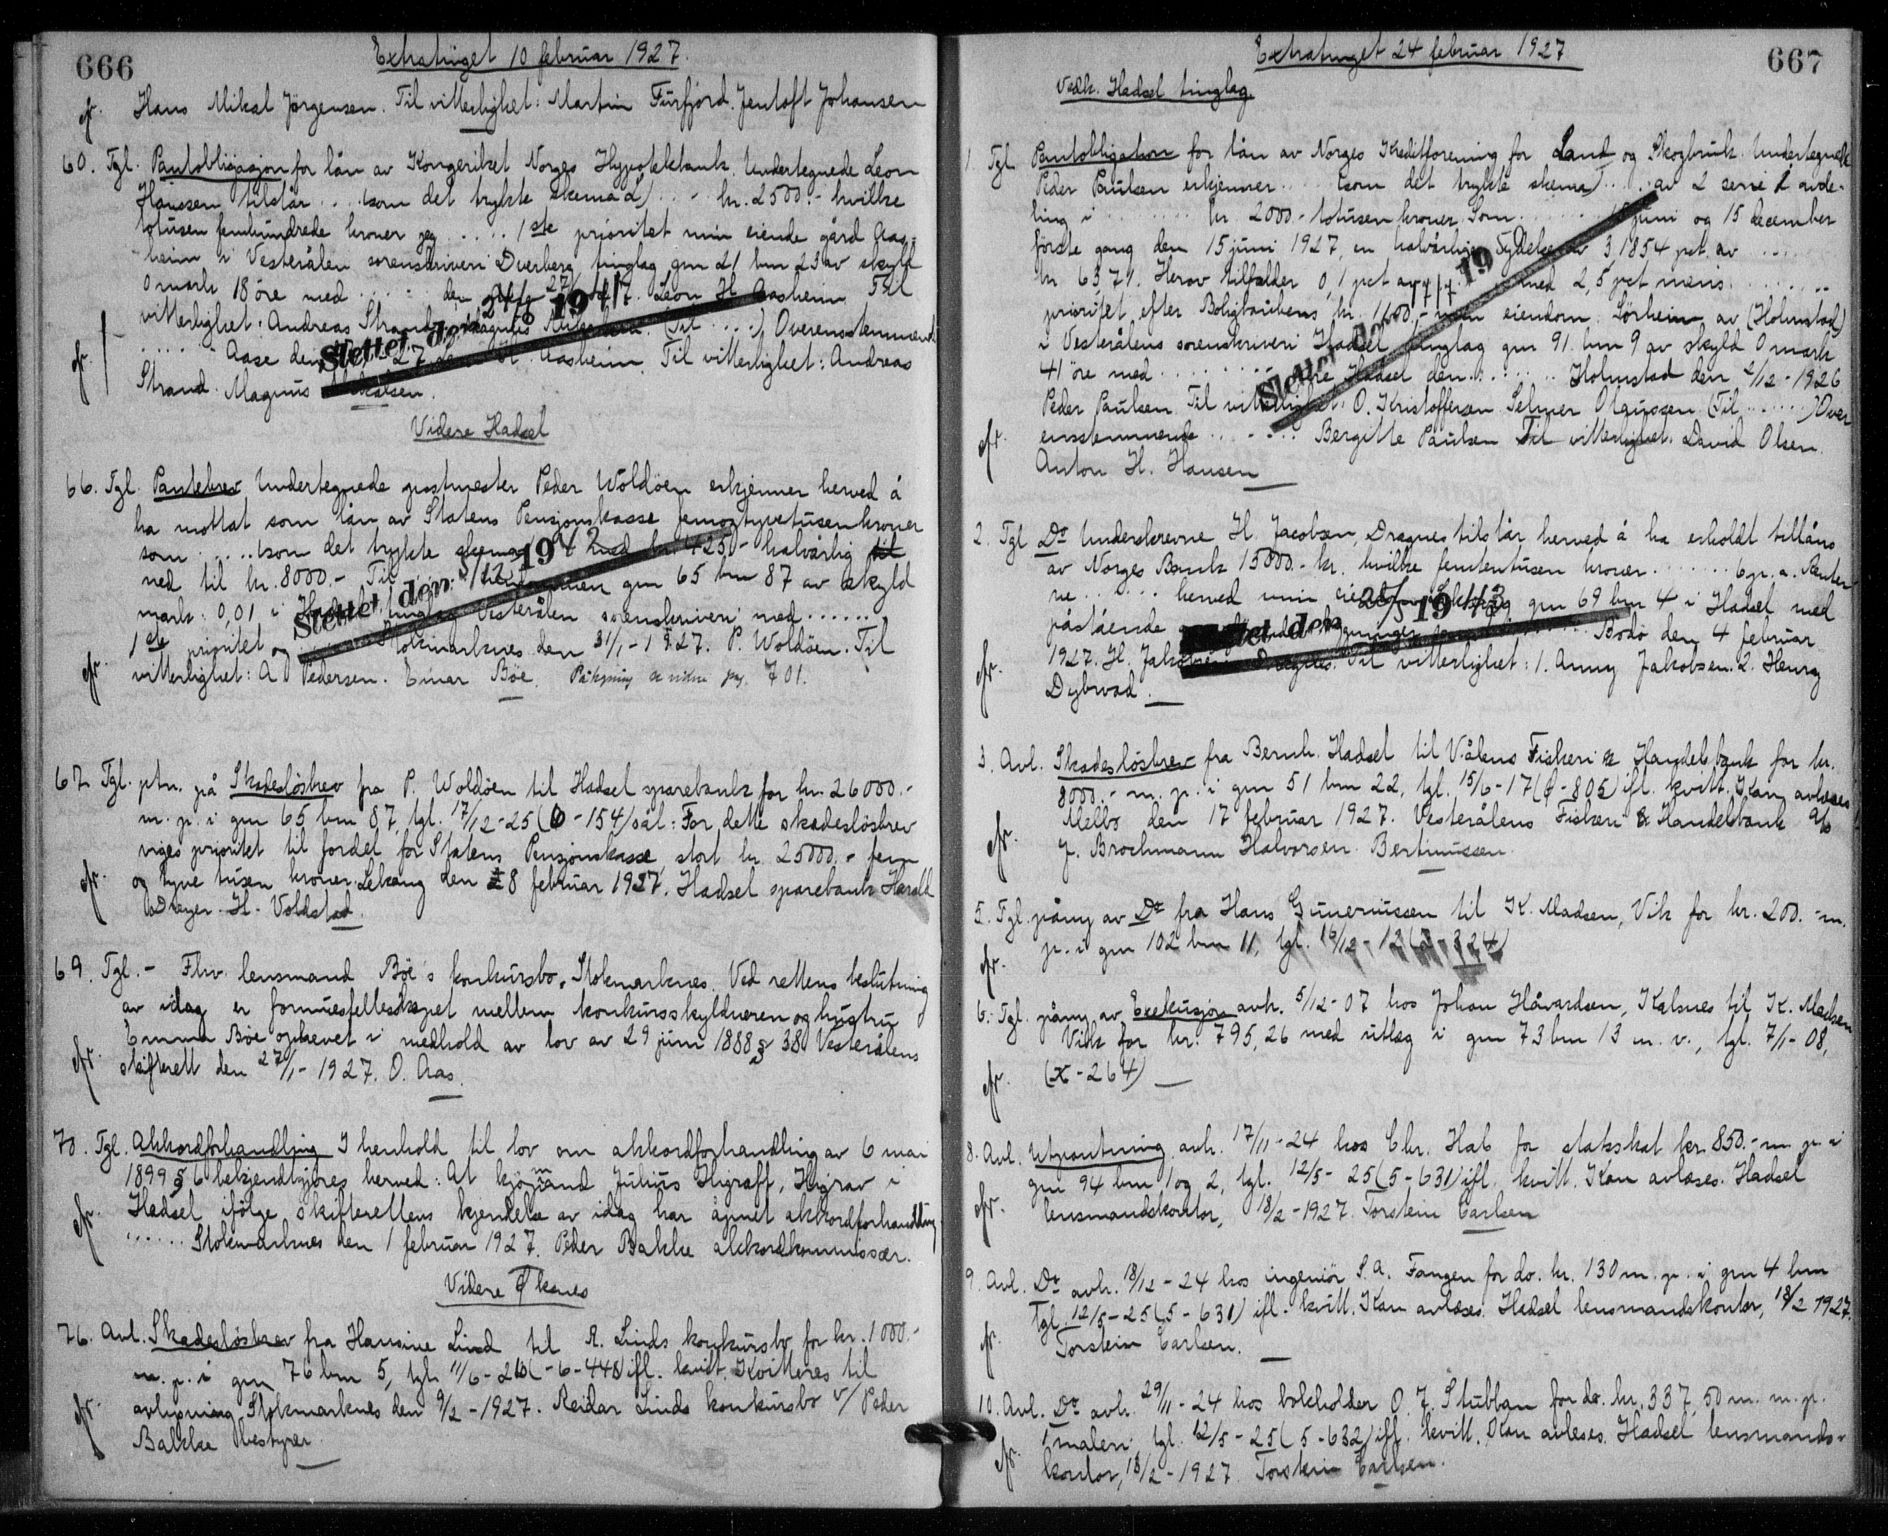 666
Extratinget 10 februar 1927.
Hans Mikal Jørgensen. Til vitterlighet: Martin Furfjord. Jentoft Johansen
60. Tgl. Pantobligasjon for lån av Kongeriket Norges Hypotekbank. Undertegnede Leon
Hanssen tilstår .... (som det trykte skema d) .... kr. 2500.- hvilke
totusen femhundrede kroner jeg ..... 1ste prioritet min eiende gård Aas-
heim i Vesterålen sorenskriveri Dverberg tinglag gnr 21 bnr 23 av skyld
0 mark 18 øre med ...... den 27 Leon H. Aasheim Til
vitterlighet: Andreas Strand, Magnus (Til ....) Overensstemmend
..... Aase den 27 Aasheim Til vitterlighet: Andreas
Strand. Magnus
Slettet den 24/6 1947
Videre Hadsel
66. Tgl. Pantebrev Undertegnede postmester Peder Woldøen erkjenner herved å
ha mottat som lån av Statens Pensjonskasse femogtyvetusenkroner
som ..... (som det trykte skema med kr 425.- halvårlig til
ned til kr. 8000.- Til eiendommen gnr 65 bnr 87 av skyld
mark: 0,01 i Hadsel tinglag Vesterålen sorenskriveri med ......
1ste prioritet Stokmarknes den 31/1-1927. P. Woldøen. Til
vitterlighet: A D Pedersen. Einar Bøe. Påtegning se videre pag. 701.
Slettet den 5/12 1942
67 Tgl. ptn. på Skadesløsbrev fra P. Woldøen til Hadsel sparebank for kr. 26000.-
m. p. i gnr 65 bnr 87, tgl. 17/12-25 (6-154) sål: For dette skadesløsbrev
viges prioritet til fordel for Statens Pensjonskasse stort kr. 25000.- fem
og tyve tusen kroner. Lekang den 8 februar 1927. Hadsel sparebank Harald
Dreyer. H. Voldstad.
69. Tgl. - Fhv. lensmand Bøe's konkursbo, Stokmarknes. Ved rettens beslutning
av idag er formuesfellesskapet mellem konkursskyldneren og hustru
Emma Bøe ophevet i medhold av lov av 29 juni 1888 § 38 Vesterålens
skifterett den 27/1-1927. O. Aas.
70. Tgl. Akkordforhandling I henhold til lov om akkordforhandling av 6 mai
1899 § 6 bekjendtgjøres herved: At kjøpmand Julius Higraff, Higrav i
Hadsel ifølge skifterettens kjendelse av idag har åpnet akkordforhandling
...... Stokmarknes den 1 februar 1927. Peder Bakke akkordkommissær.
Videre Øksnes
76. Avl. Skadesløsbrev fra Hansine Lind til R. Linds konkursbo for kr. 1000.-
m. p. i gnr 76 bnr 5, tgl. 11/6-26 (-6-448) ifl. kvitt. Kvitteres til
avlysning. Stokmarknes den 9/2-1927. Reidar Linds konkursbo v/ Peder
Bakke bestyrer.
667
Extratinget 24 februar 1927
Vedk. Hadsel tinglag.
1. Tgl. Pantobligation for lån av Norges Kreditforening for Land og Skogbruk. Undertegnede
Peder Paulsen erkjenner ..... (som det trykte skema) ..... av 2 serie 2 avde-
ling i ........ kr 2000.- totusen kroner. Som ....... 15 juni og 15 december
første gang den 15 juni 1927, en halvårlig ydelse av 3,1854 pct av .....
kr. 6371. Herav tilfalder 0,1 pct av med 2,5 pct mens ........
prioritet efter Boligbankens kr. 1600,- min eiendom Sørheim av (Holmstad)
i Vesterålens sorenskriveri Hadsel tinglag gnr 91 bnr 9 av skyld 0 mark
41 øre med ......... Hadsel den ....... Holmstad den 2/12-1926
Peder Paulsen. Til vitterlighet: O. Kristoffersen Selmer Olaussen. (Til .......) Over
ensstemmende ........ Bergitte Paulsen Til vitterlighet. David Olsen.
Anton H. Hansen
Slettet den 19
2. Tgl Do Underskrevne H. Jacobsen, Dragnes tilstår herved å ha erholdt tillåns
av Norges Bank 15000.- kr. hvilke femtentusen kroner ........ 6 p. a. Panter-
ne ....... herved min eiendom gnr 69 bnr 4 i Hadsel med
påstående bygninger ........ Bodø den 4 februar
1927. H. Jakobsen, Dragnes. Til vitterlighet: 1. Anny Jakobsen. 2. Henry
Dybwad.
Slettet den 28/5 1943
3. Avl. Skadesløsbrev fra Bernh. Hadsel til V.ålens Fiskeri & Handelsbank for kr.
8000.- m. p. i gnr 51 bnr 22, tgl. 15/6-17 (-805) ifl. kvitt. Kan avleses
Melbo den 17 februar 1927. Vesterålens Fiskeri & Handelsbank A/s
J. Brochmann Halvorsen Bertinussen.
5. Tgl. påny av Do fra Hans Guneriussen til K. Madsen, Vik for kr. 200.- m.
p. i gnr 102 bnr 11, tgl. 16/12-12
6. Tgl. påny av Exekusjon avh. 5/12-07 hos Johan Håvardsen, Kalsnes til K. Madsen
Vik for kr. 795,26 med utlæg i gnr 73 bnr 13 m. v., tgl. 7/1-08,
(x-264)
8. Avl. Utpantning avh. 17/11-24 hos Chr. Hab for statskat kr. 850.- m. p. i
gnr 94 bnr 1 og 2, tgl. 12/5-25 (5-631) ifl. kvitt. Kan avleses. Hadsel
lensmandskontor, 18/2-1927. Torstein Carlsen
9. Avl. Do avh. 18/12-24 hos ingeniør S. A. Fangen for do. kr. 130 m. p. i gnr 4 bnr
Tgl. 12/5-25 (5-631) ifl. kvitt. Kan avleses. Hadsel lensmandskontor, 18/2 1927.
Torstein Carlsen.
10. Avl. Do avh. 29/11-24 hos bokholder O. J. Stubban for do. kr. 337,50 m. m. p.
maleri, tgl. 12/5-25 (5-632) ifl. kvitt. Kan avleses. Hadsel lensmands-
kontor, 18/2-1927. Torstein Carlsen.